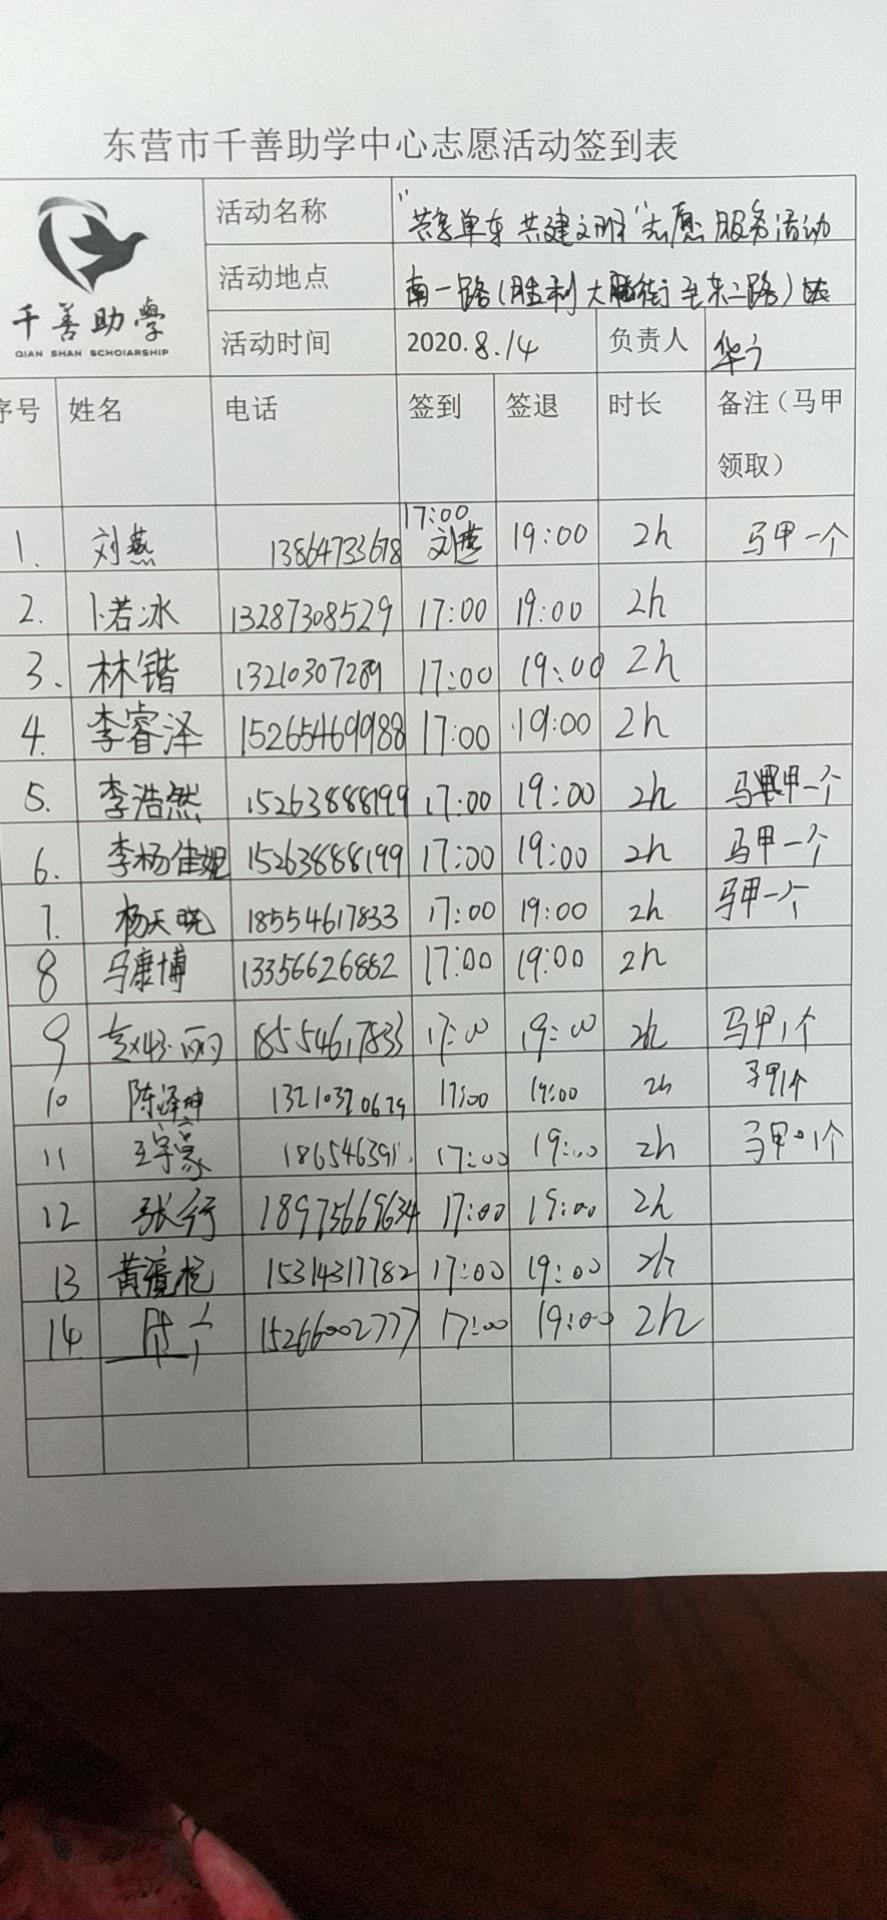 东营市千善助学中心志愿活动签到表
千善助學
QIAN SHAN SCHOIARSHIP
活动名称 "共享单车 共建文明"志愿服务活动
活动地点 南一路(胜利大街至东二路)
活动时间 2020.8.14 负责人
序号 姓名 电话 签到 签退 时长 备注(马甲领取)
1. 刘燕 13864733678 17:00 刘燕 19:00 2h 马甲一个
2. 卜若冰 13287308529 17:00 19:00 2h
3. 林锴 13210307289 17:00 19:00 2h
4. 李睿泽 15265469988 17:00 19:00 2h
5. 李浩然 15263888199 17:00 19:00 2h 马甲一个
6. 李杨佳妮 15263888199 17:00 19:00 2h 马甲一个
7. 杨天晓 18554617833 17:00 19:00 2h 马甲一个
8 马康博 13356626882 17:00 19:00 2h
9 17:00 19:00 2h 马甲1个
10 陈泽坤 17:00 19:00 2h 马甲1个
11 17:00 19:00 2h 马甲1个
12 张行 17:00 19:00 2h
13 15314317782 17:00 19:00 2h
14. 15266002777 17:00 19:00 2h